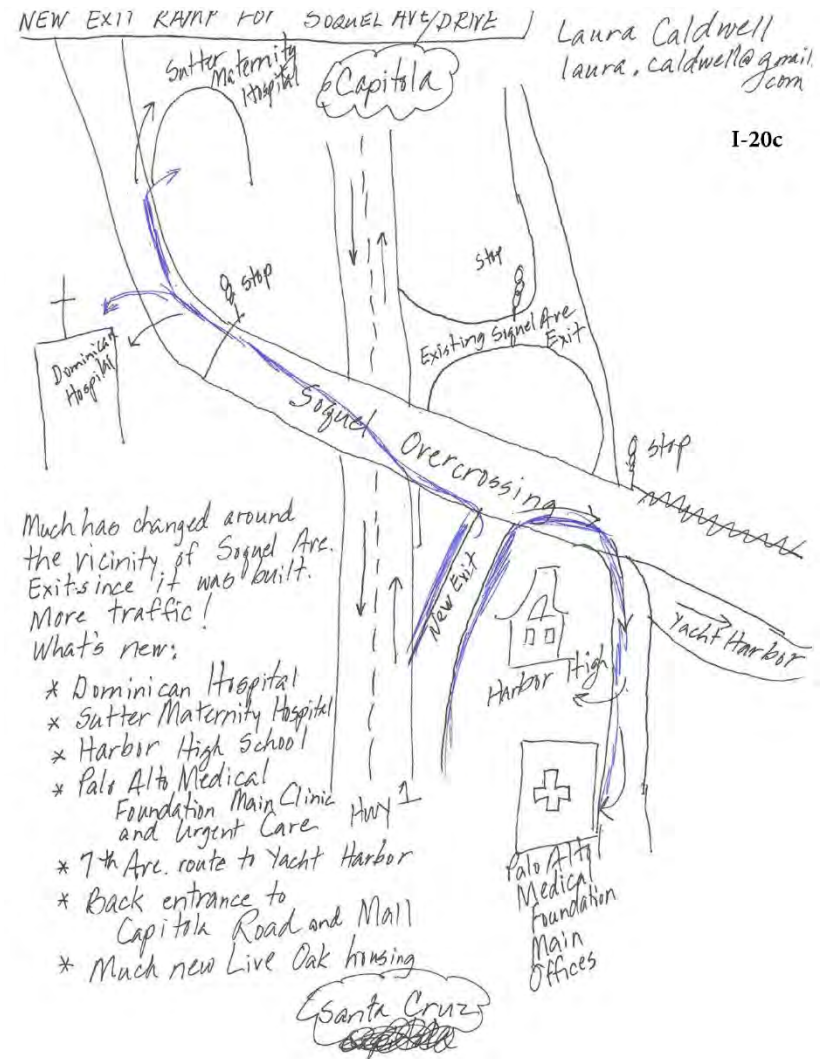 NEW EXIT RAMP FOR SOQUEL AVE/DRIVE
Laura Caldwell
laura.caldwell@gmail.
com
I-20c
Sutter
Maternity
Hospital
Capitola
stop
stop
Existing Soquel Ave
Exit
Dominican
Hospital
Soquel Overcrossing
stop
New Exit
Yacht Harbor
Harbor High
Much has changed around
the vicinity of Soquel Ave.
Exit since it was built.
More traffic!
What's new:
* Dominican Hospital
* Sutter Maternity Hospital
* Harbor High School
* Palo Alto Medical
Foundation Main Clinic
and Urgent Care
* 7th Ave. route to Yacht Harbor
* Back entrance to
Capitola Road and Mall
* Much new Live Oak housing
Hwy 1
Palo Alto
Medical
Foundation
Main
Offices
Santa Cruz